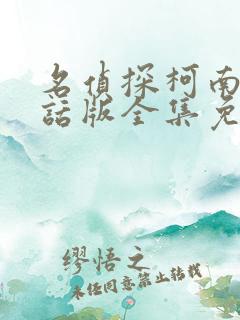 名侦探柯南
话版全集免
缪悟之
未任同意禁止转载